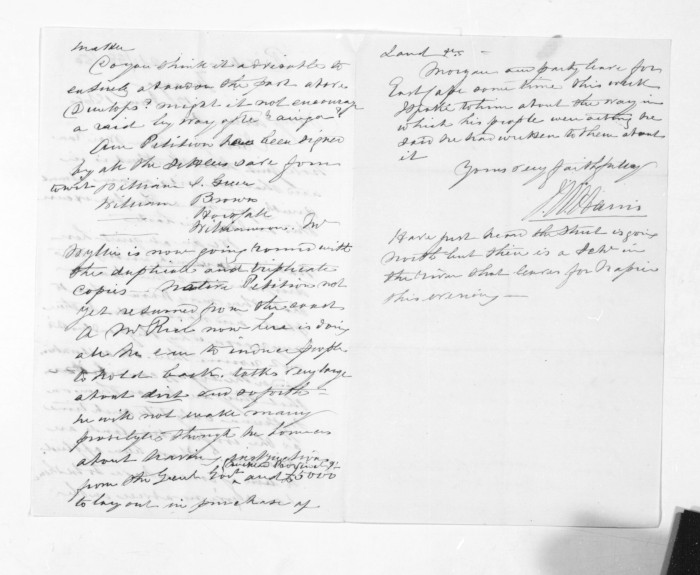 matter
Do you think it advisable to
entirely abandon the port above
Dunlops? might it not encourage
a raid by way of the
Our Petition has been signed
by all the settlers save four
to wit William S. Greer
William Brown
Horsfall
Wilkinson. Mr
Wyllie is now going round with
the duplicate and triplicate
copies. Native Petition not
yet returned from the coast
A Mr Rich now here is doing
all he can to induce people
to hold back, talks very large
about dirt and so forth -
he will not make many
proselytes though he
about having instructions
from the Genl Govt and £5000
to lay out in purchase of
Land &c -
Morgan and party leave for
East Cape some time this week
I spoke to him about the way in
which his people were acting he
said he had written to them about
it
Yours very faithfully
J W Harris
Have just heard the Street is going
North but there is a Schr in
the river that leaves for Napier
this evening -